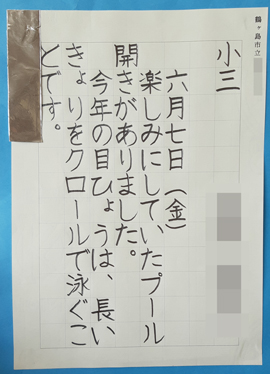 鶴ヶ島市立
小三
六月七日（金）
楽しみにしていたプール
開きがありました。
今年の目ひょうは、長い
きょりをクロールで泳ぐこ
とです。